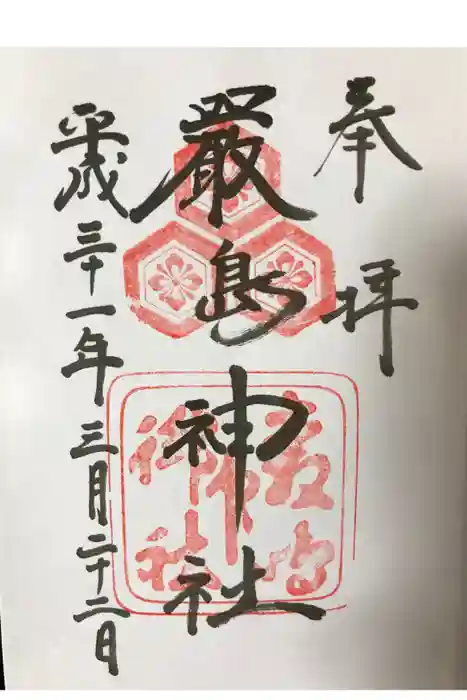 奉拝
厳島神社
平成三十一年三月二十二日